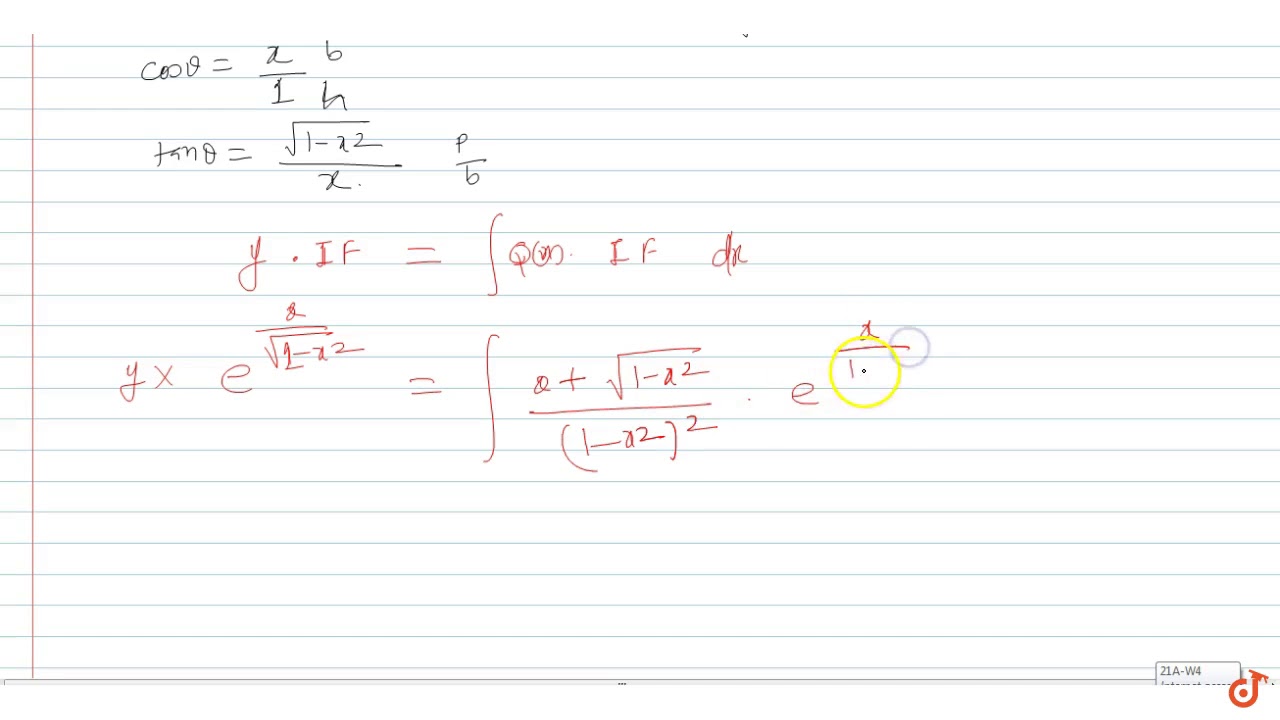 cosθ = x/1 b/h
tanθ = √(1-x2)/x. p/b
y . IF = ∫ Q(x). IF dx
y x e^(x/√(1-x2)) = ∫ (x+√(1-x2))/(1-x2)^2 . e^(x/1
21A-W4